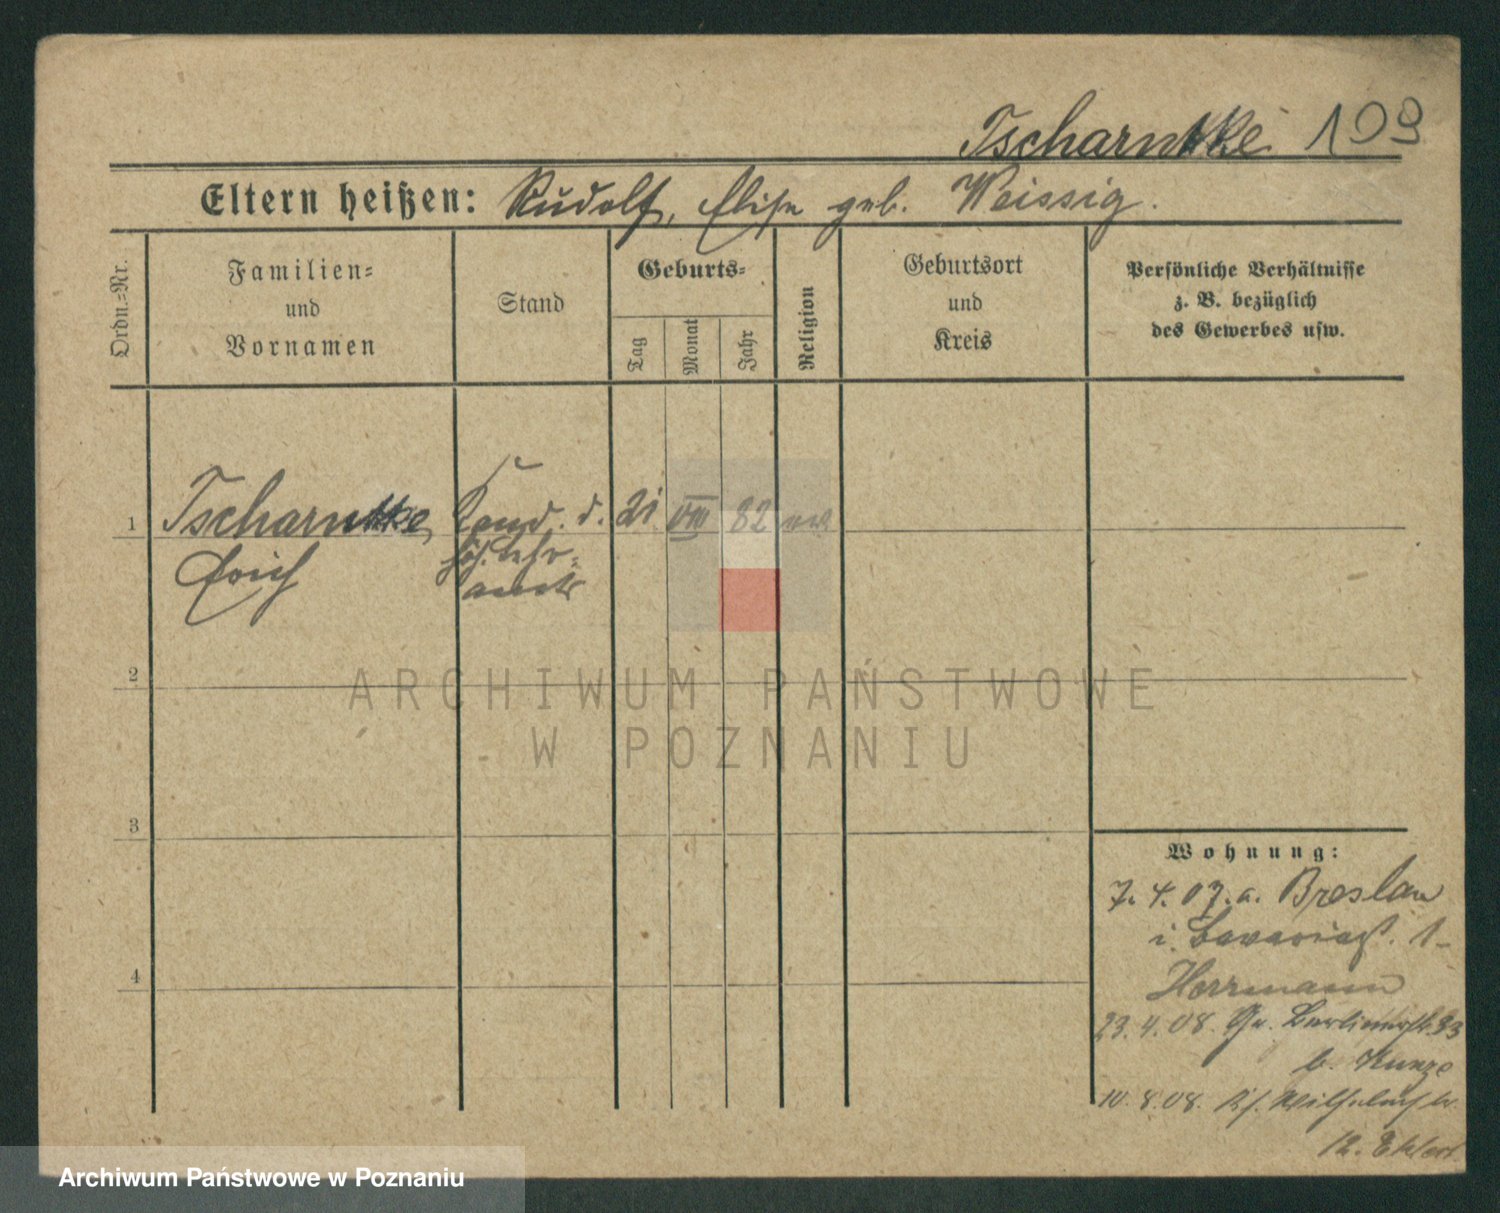 Tscharntke 109
Eltern heißen: Rudolf, Elise geb. Weissig.
Ordn.=Nr.
Familien=
und
Vornamen
Stand
Geburts=
Tag
Monat
Jahr
Religion
Geburtsort
und
Kreis
Persönliche Verhältnisse
z. B. bezüglich
des Gewerbes usw.
1 Tscharntke, Kand. d. 21 VIII 82 ev
Erich
höh. Lehr=
amts
2
3
4
Wohnung:
7. 4. 07. a. Breslau
i. 1
Herrmann
23. 4. 08. Gr. Berlinerstr. 33
b. Kunze
10. 8. 08.
12.
ARCHIWUM PAŃSTWOWE
W POZNANIU
Archiwum Państwowe w Poznaniu